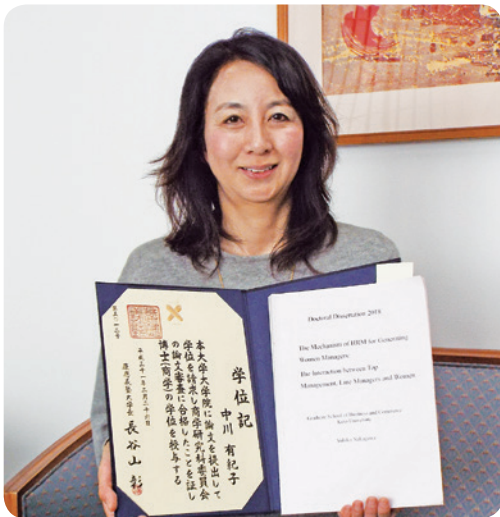 学位記
中川 有紀子
本大学大学院に論文を提出して
学位を請求し商学研究科委員会
の論文審査に合格したことを証し
博士(商学)の学位を授与する
平成三十一年三月二十六日
慶應義塾大学長 長谷山 彰
Doctoral Dissertation 2018
The Mechanism of HRM for Generating
Women Managers:
The Interaction between Top
Management, Line Managers and Women
Graduate School of Business and Commerce
Keio University